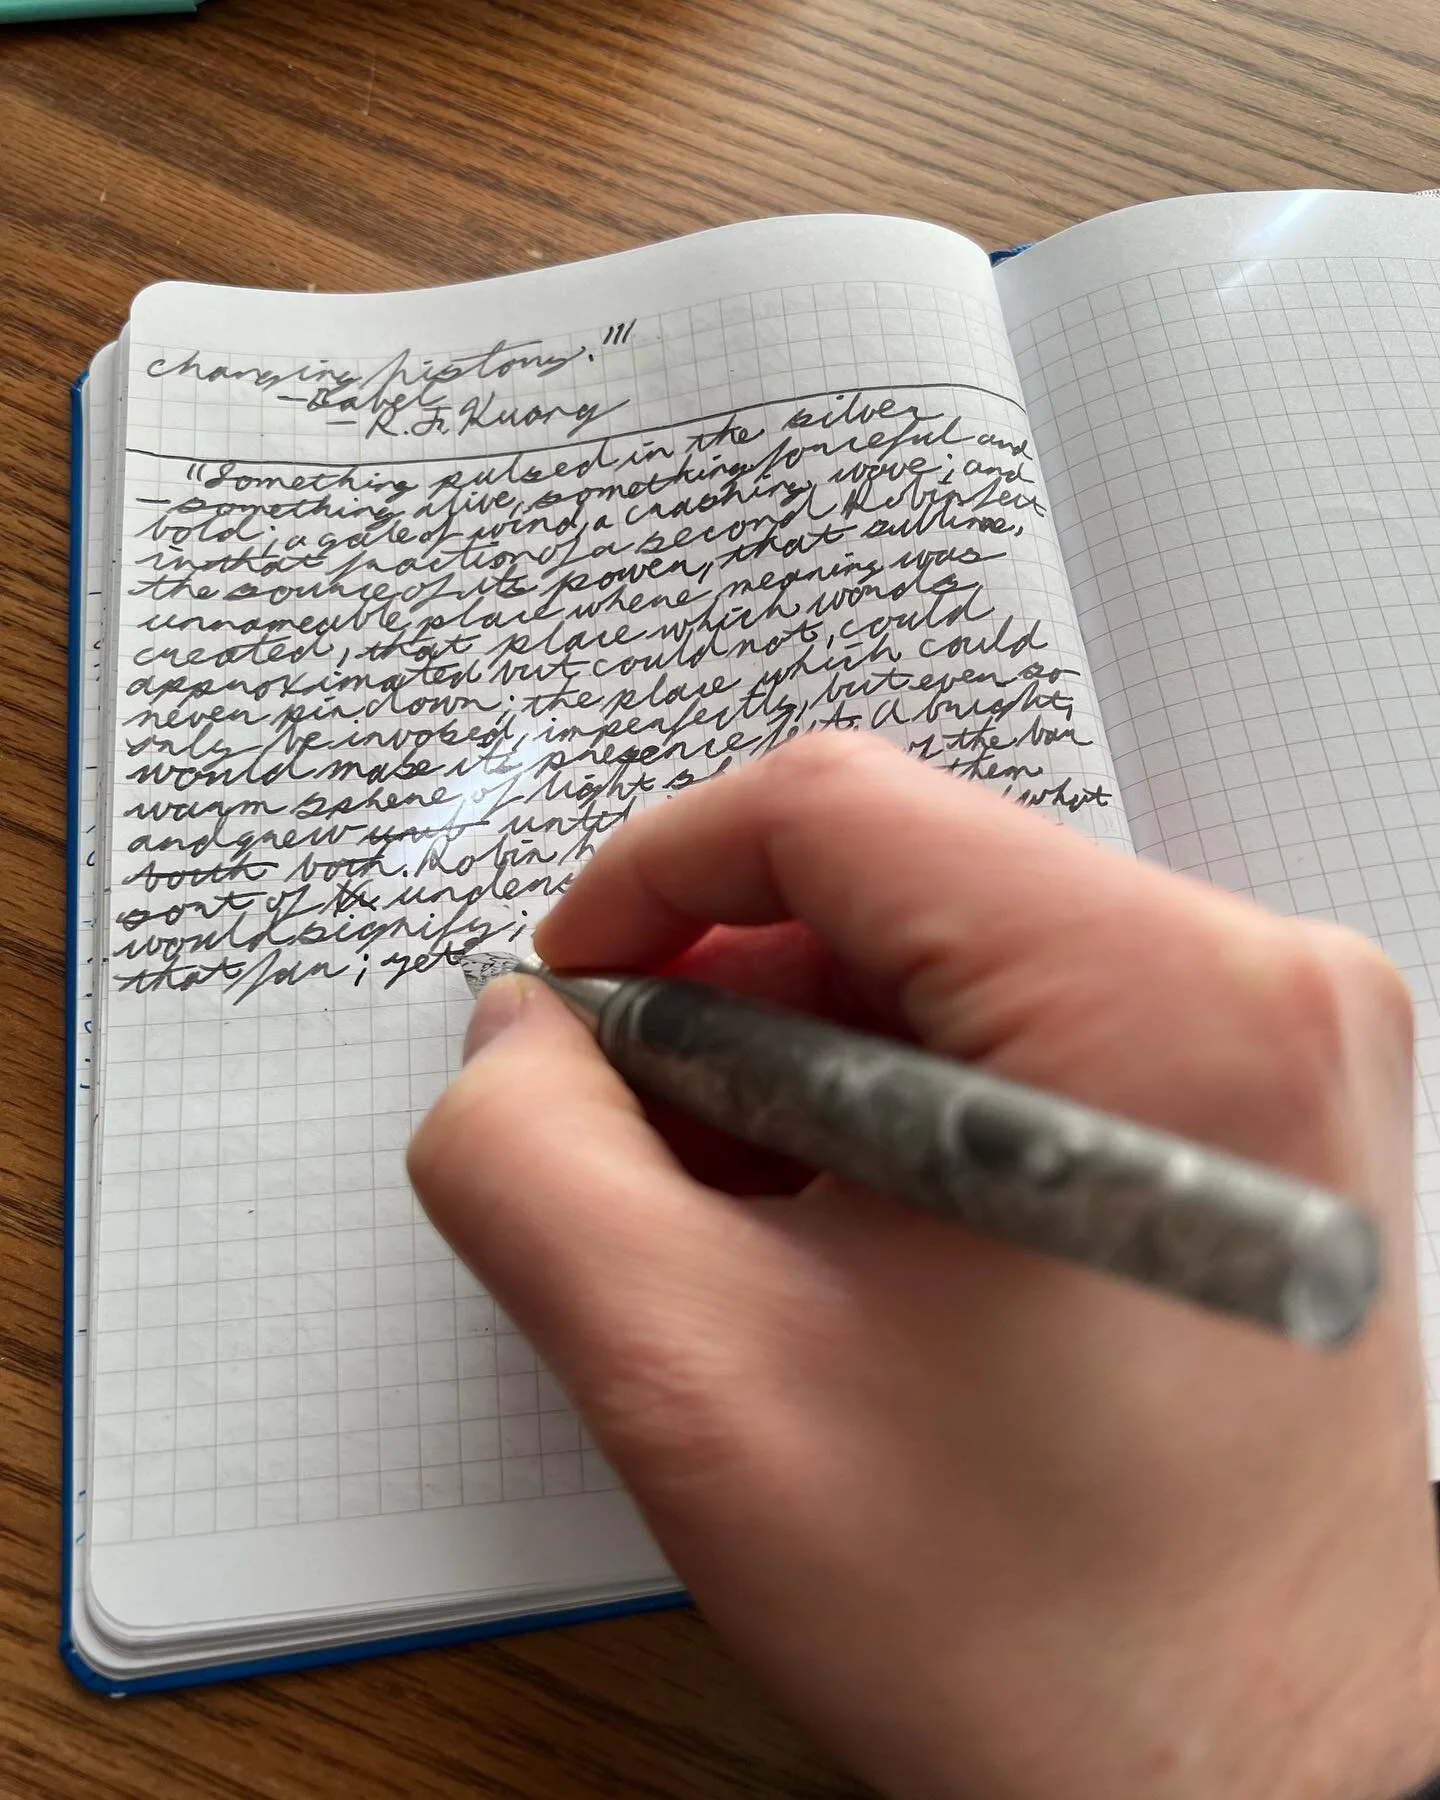 changing history.'"
-Babel
- R.F. Kuang
"Something pulsed in the silver
- something alive, something forceful and
bold; a gale of wind, a crashing wave; and
in that fraction of a second Robin felt
the source of its power, that sublime,
unnameable place where meaning was
created, that place which words
approximated but could not, could
never pin down; the place which could
only be invoked, imperfectly, but even so
would make its presence felt. A bright,
warm sphere of light of the bar
and grew until them
both. Robin what
sort of
would signify;
that far; yet